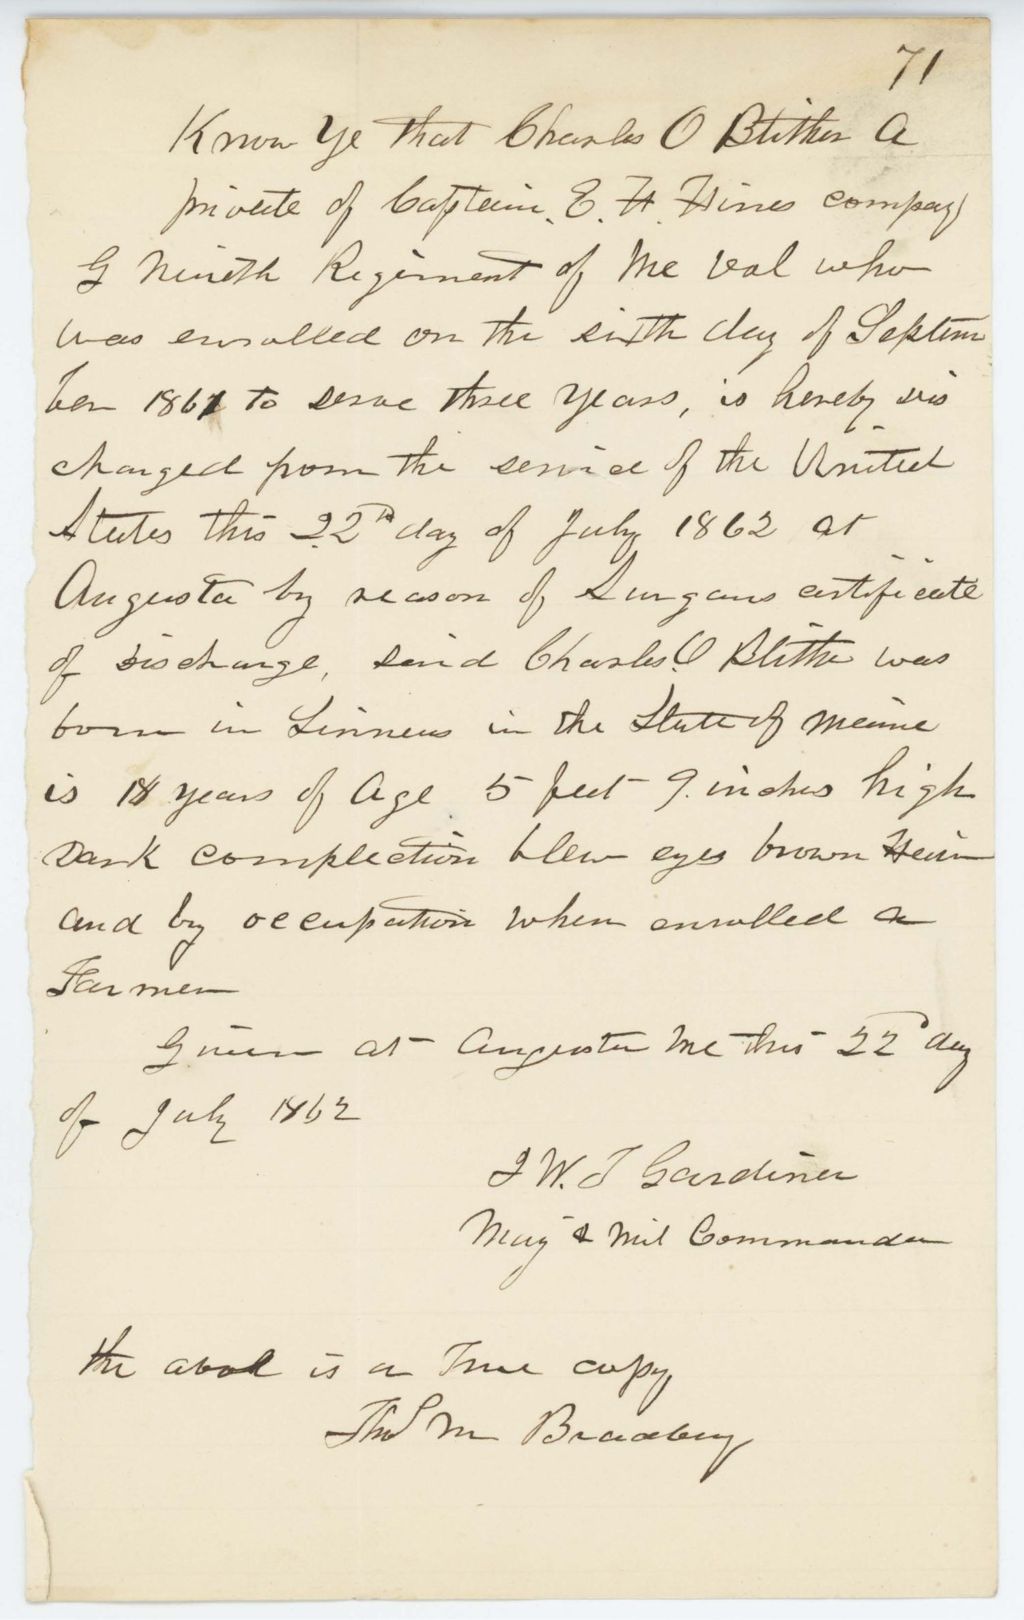 71
Know Ye that Charles O Blither A
private of Captain. E. H. Hines compay
G Nineth Regiment of Me Vol who
was enrolled on the sixth day of Septem
ber 1861 to serve three years, is hereby dis
charged from the service of the United
States this 22nd day of July 1862 at
Augusta by reason of Surgans certificate
of discharge, said Charles O Blither was
born in Linneus in the State of Maine
is 18 years of Age 5 feet 9 inches high
Dark complection blew eyes brown Hair
and by occupation when enrolled a
Farmer
Given at Augusta Me this 22d day
of July 1862
J W. T Gardiner
Maj & Mil Commander
the above is a True copy
Thos M Bradbury